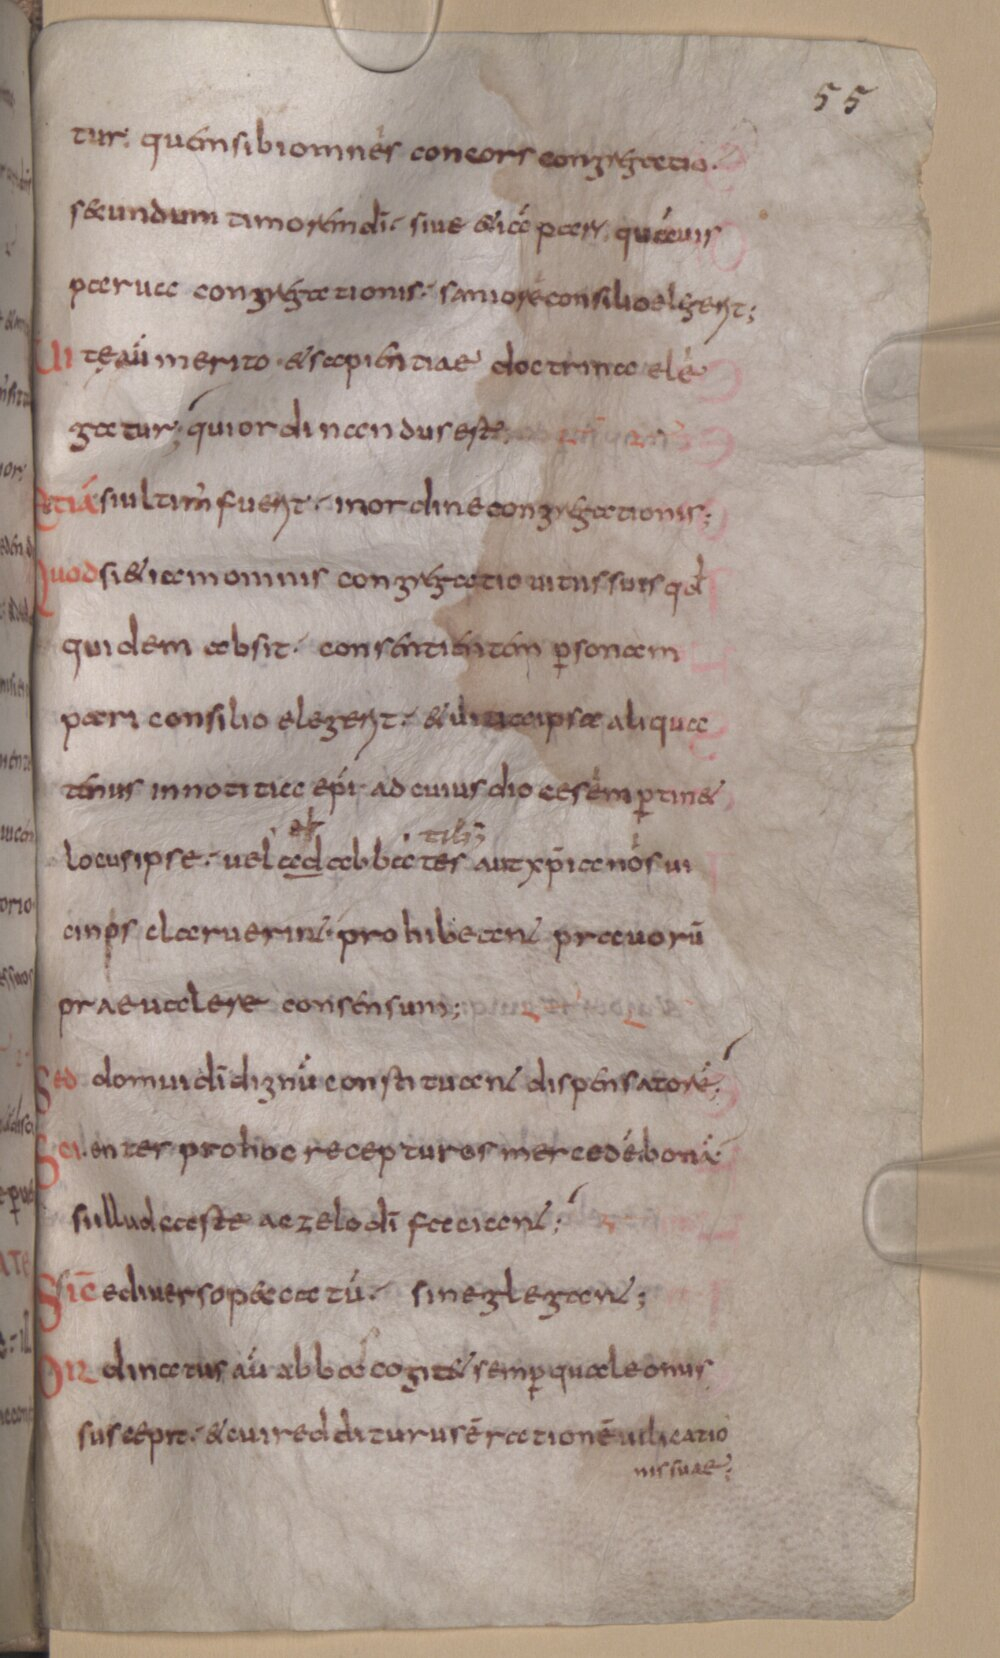 55
tur; quem sibi omnes concors congregatio.
secundum timorem dī. sive etiā pars quāvis
parva congregationis. saniore consilio elegerit;
Uite aū merito et sapientiae doctrina ele
gatur; qui ordinandus est;
Etiā si ultim' fuerit. in ordine congregationis;
Quod si etiam omnis congregatio vitiis suis qđ
quidem absit. consentientem ꝑsonam
pari consilio elegerit. et vitia ipsa aliqua
tenus in notitia epī ad cuius diocesem ꝑtinet
locus ipse. vel ad abbates aut xp̄ianos vi
tib;
cinos claruerint. prohibeant pravorū
praevalere consensum;
Sed domui dī dignū constituant dispensatorē;
Scienter pro hoc recepturos mercedē bonā.
si illud caste ac zelo dī faciant;
Sic̄ e diverso peccatū. si neglegant;
Ordinatus aū abba cogitet semꝑ quale onus
suscepit. et cui redditurus ē rationē vilicatio
nis suae;